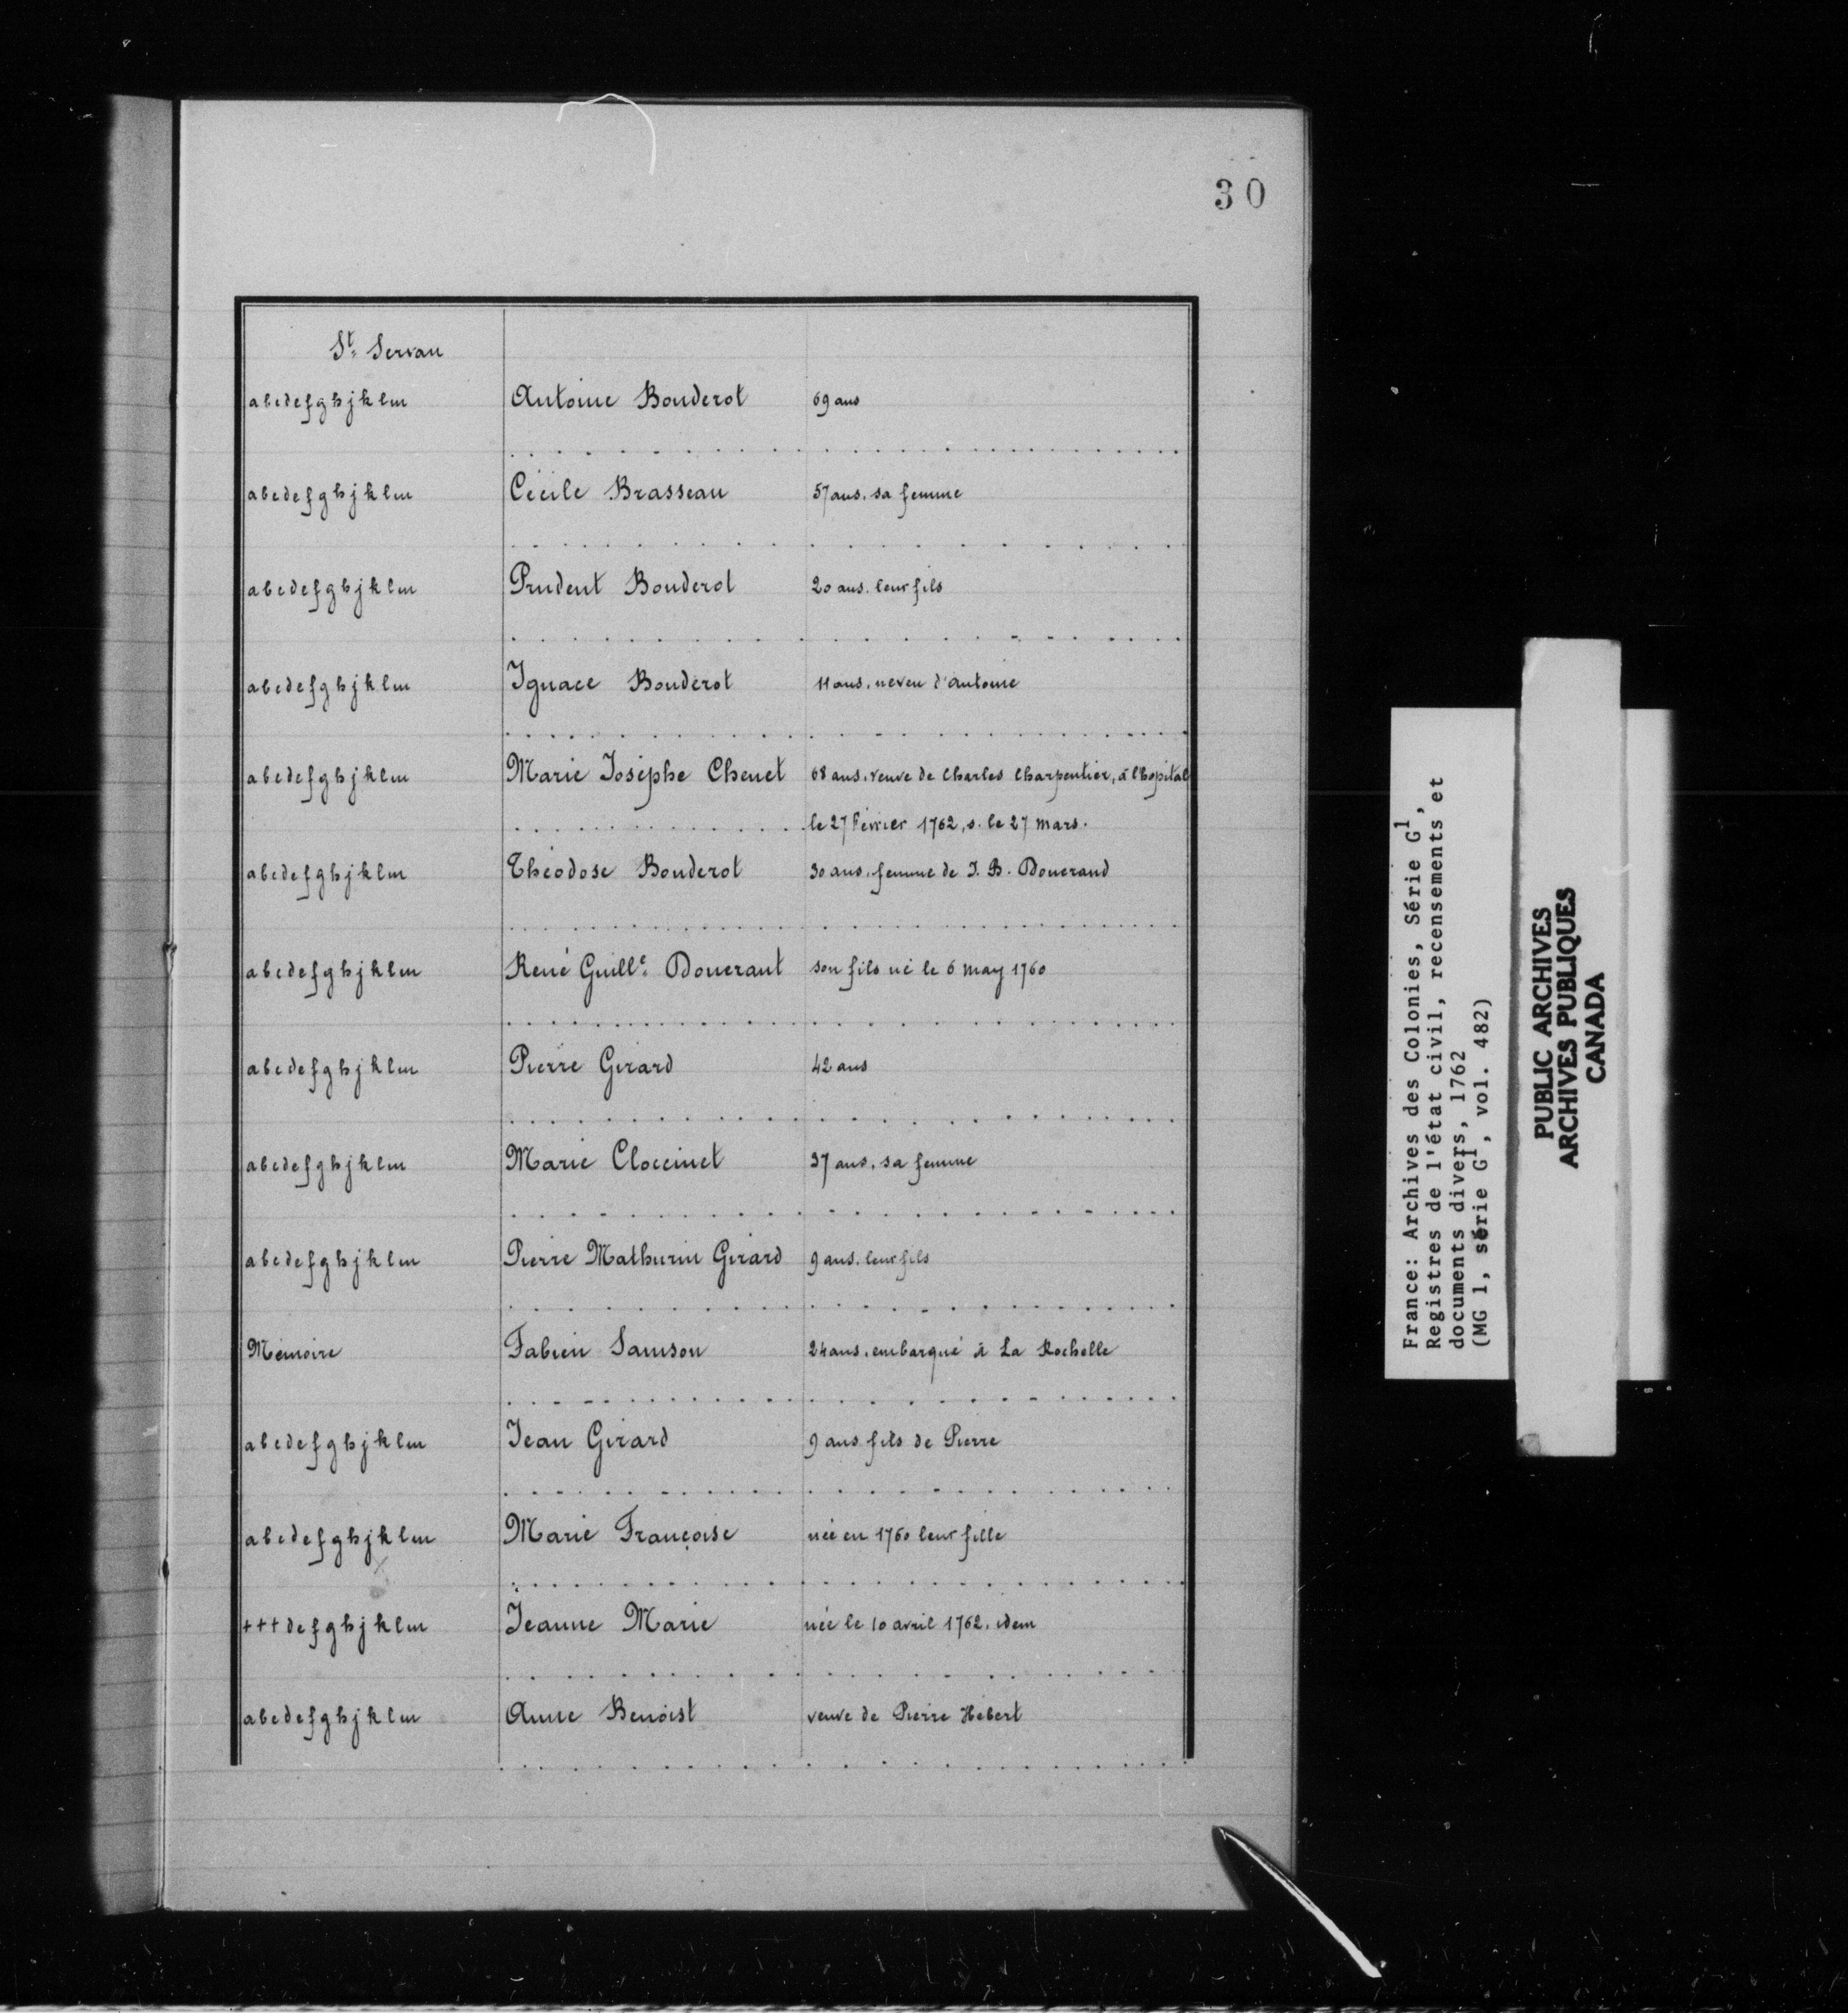 30
St. Servan
abcdefghjklm Antoine Bouderot 69 ans
abcdefghjklm Cécile Brasseau 57 ans. sa femme
abcdefghjklm Prudent Bouderot 20 ans. leur fils
abcdefghjklm Ignace Bouderot 11 ans. neveu d'antoine
abcdefghjklm Marie Josephe Chenet 68 ans. veuve de Charles Charpentier, à l'hopital
le 27 Février 1762, s. le 27 mars.
abcdefghjklm Théodose Bouderot 30 ans. femme de J. B. Douerand
abcdefghjklm René Guille. Douerant son fils né le 6 may 1760
abcdefghjklm Pierre Girard 42 ans
abcdefghjklm Marie Cloccinet 37 ans. sa femme
abcdefghjklm Pierre Mathurin Girard 9 ans. leur fils
Mémoire Fabien Samson 24 ans. embarqué à La Rochelle
abcdefghjklm Jean Girard 9 ans fils de Pierre
abcdefghjklm Marie Françoise née en 1760 leur fille
+++defghjklm Jeanne Marie née le 10 avril 1762. idem
abcdefghjklm Anne Benoist veuve de Pierre Hébert
France: Archives des Colonies, Série G1,
Registres de l'état civil, recensements et
documents divers, 1762
(MG 1, série G1, vol. 482)
PUBLIC ARCHIVES
ARCHIVES PUBLIQUES
CANADA